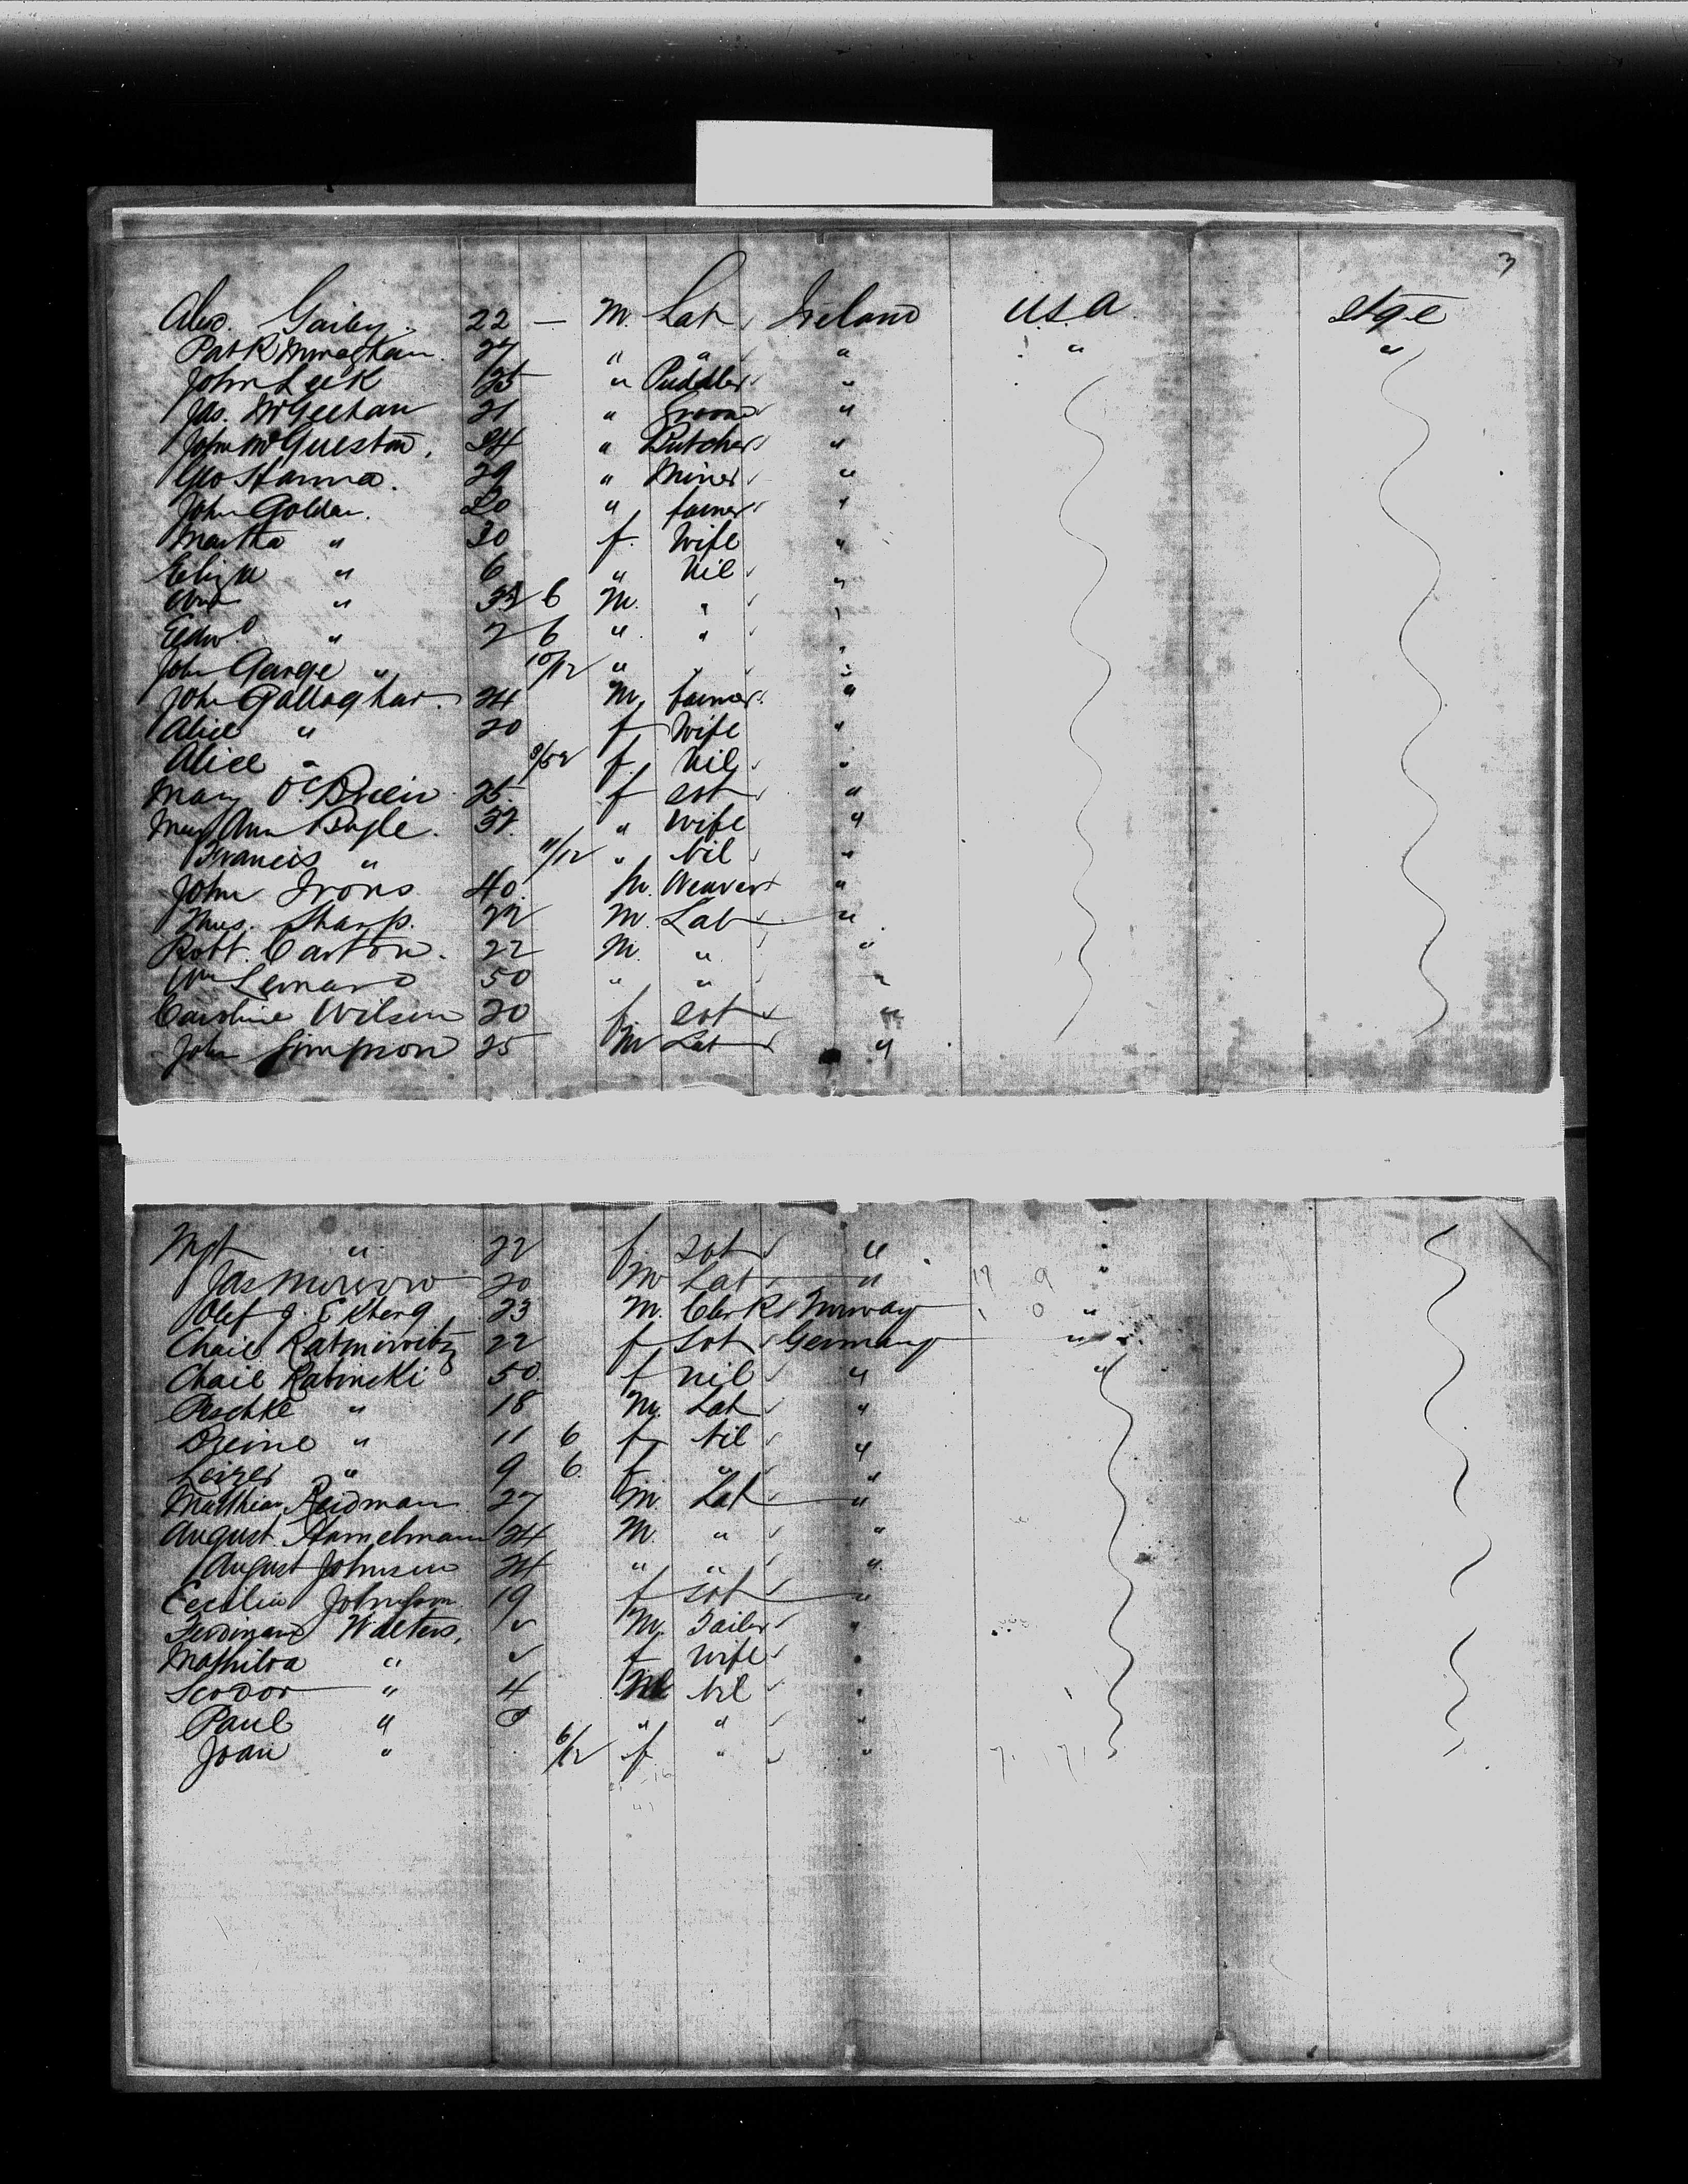 3
Alex. Gailey 22 — M. Lab Ireland U.S.A. stge
Pat K 27 " " " " "
John Leek 25 " Puddler "
Jas. McGeehan 21 " Groom "
John McQueston. 24 " Butcher "
Geo Hanna. 29 " Miner "
John Golden. 30 " farmer "
Martha " 30 f. Wife "
Eliza " 6 " Nil "
Wm " 6 M. " "
Edwd " 2 6 " " "
John George " 10/12 " " "
John Gallaghar. 24 M. farmer "
Alice " 20 f Wife "
Alice " 8/52 f. Nil "
Mary O'Brien 25. f sst "
Mary Ann Boyle. 37. " Wife "
Francis " 11/12 " Nil "
John Irons 40. M. Weaver "
Thos. Sharp. 22 M. Lab "
Robt. Carton. 22 M. " "
Wm Lenard 50 " " "
Caroline Wilson 20 f. sst "
John Simpson 25 M Lab "
Mgt " 22 f. sst "
Jas Morrow 20 M Lab "
Olef J. Ekberg 23 M. Clerk Norway "
Chaie Ratmiwitz 22 f sst Germany "
Chaie Rabinski 50. f nil " "
Peschke " 18 M. Lab "
Breine " 11 6 f Nil "
Leizer " 9 6. f " "
Matthias Reidman 27 M. Lab "
August Hamelmann 24 M. " "
August Johnson 24 " " "
Cecilia Johnsson 19 f sst "
Ferdinand Walters, M. Tailor "
Mathilda " f wife "
Teodor " 4 M Nil "
Paul " " " "
Joan " 6/12 f " "